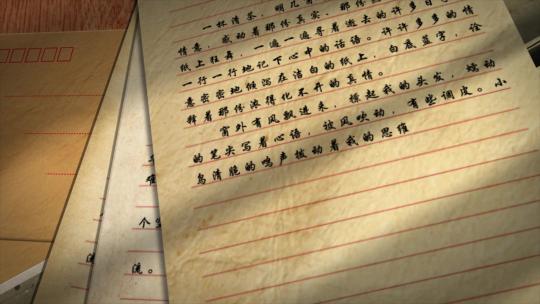 一杯清茶，明几
情意，感动着那份真实，那份
纸上狂舞，一遍一遍寻着逝去的许多日
一行一行地记下心中的话语。许许多多的情
意密密地倾泻在洁白的纸上，白底蓝字，诠
释着那份浓得化不开的真情。
窗外有风飘进来，撩起我的头发，蠕动
的笔尖写着心语，被风吹动，有些调皮。小
鸟清脆的鸣声拨动着我的思维
个